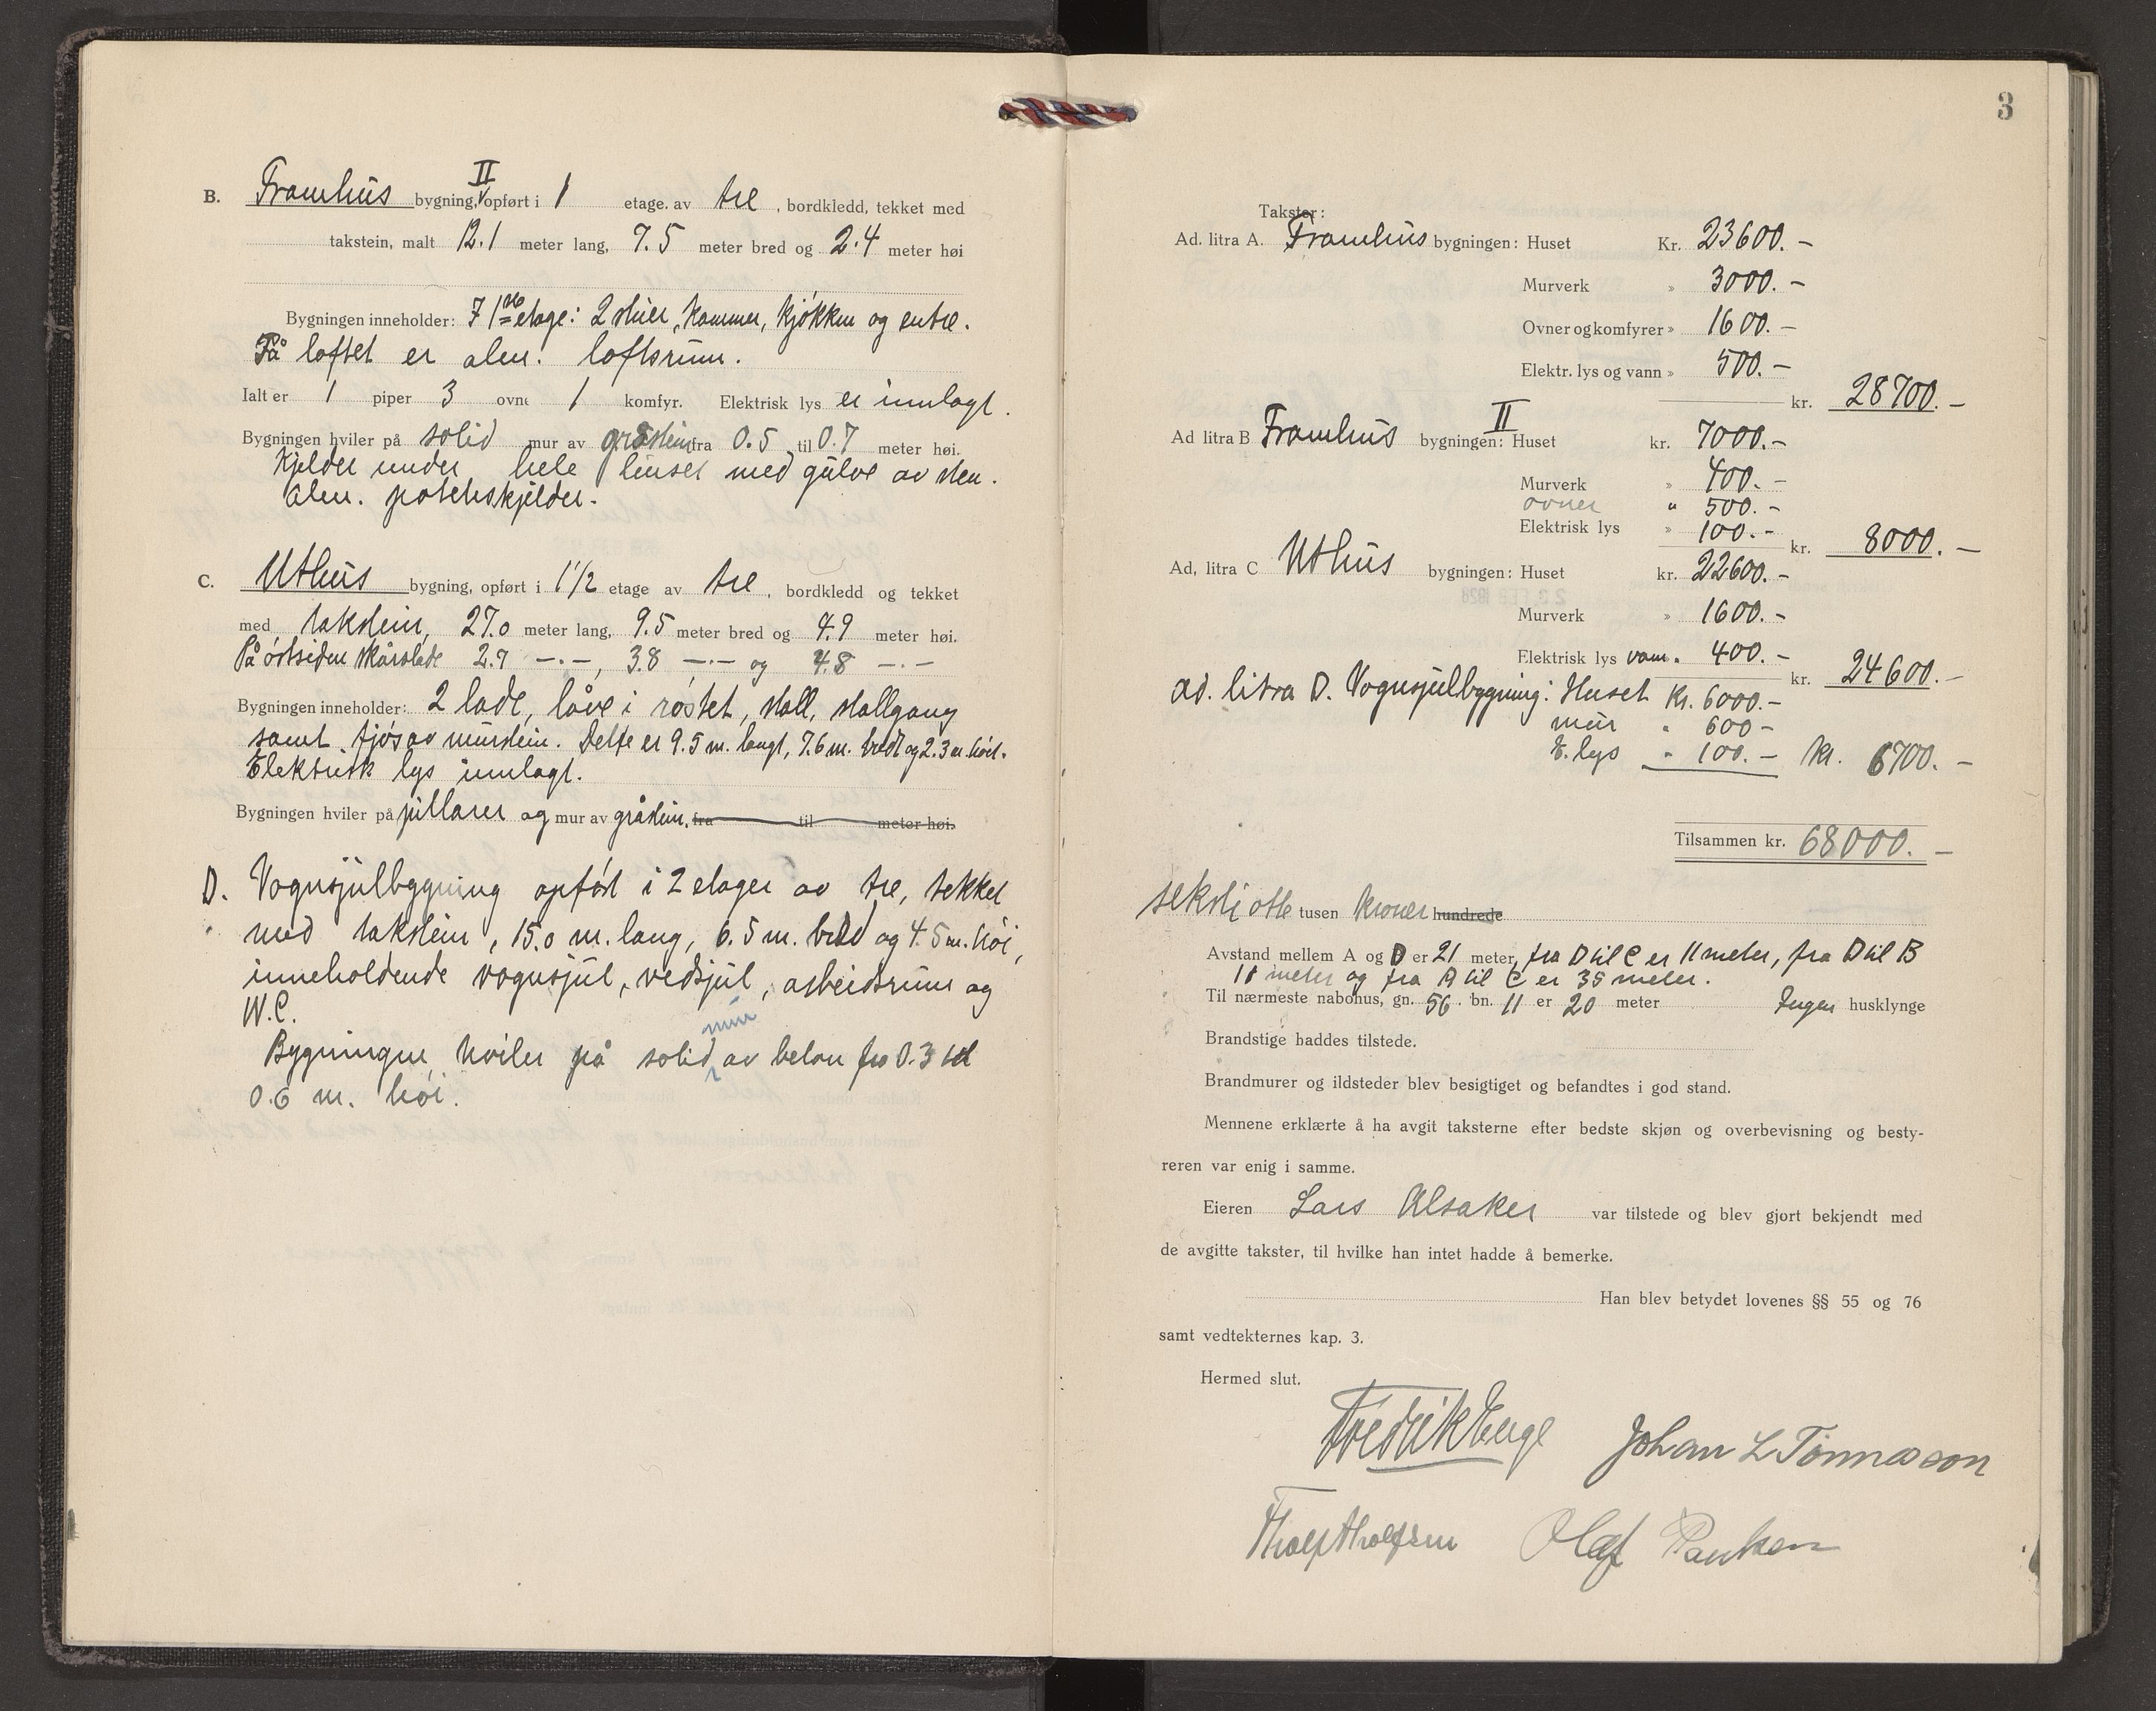 B. Framhus bygning, II opført i 1 etage. av tre, bordkledd, tekket med
takstein, malt 12.1 meter lang, 7.5 meter bred og 2.4 meter høi
Bygningen inneholder: I 1ste etage: 2 stuer, kammer, kjøkken og entre.
På loftet er alm. loftsrum.
Ialt er 1 piper 3 ovne 1 komfyr. Elektrisk lys er innlagt.
Bygningen hviler på solid mur av gråstein fra 0.5 til 0.7 meter høi.
Kjelder under hele huset med gulve av sten.
Alm. potetkskjelder.
C. Uthus bygning, opført i 1 1/2 etage av tre, bordkledd og tekket
med takstein, 27.0 meter lang, 9.5 meter bred og 4.9 meter høi.
På østsiden skårslade 2.7 —·—, 3.8 —·— og 4.8 —·—
Bygningen inneholder: 2 lade, låve i røstet, stall, stallgang
samt fjøs av murstein. Dette er 9.5 m. langt, 7.6 m. bredt og 2.3 m. høit.
Elektrisk lys innlagt.
Bygningen hviler på pillarer og mur av gråstein. fra til meter høi.
D. Vognsjulbygning opført i 2 etager av tre, tekket
med takstein, 15.0 m. lang, 6.5 m. bred og 4.5 m. høi,
inneholdende vognsjul, vedsjul, arbeidsrum og
W.C.
Bygningen hviler på solid mur av beton fra 0.3 til
0.6 m. høi.
3
Takster:
Ad. litra A. Framhus bygningen: Huset Kr. 23600.-
Murverk » 3000.-
Ovner og komfyrer » 1600.-
Elektr. lys og vann » 500.-
kr. 28700.-
Ad litra B Framhus bygningen: II Huset kr. 7000.-
Murverk » 400.-
ovner " 500.-
Elektrisk lys » 100.-
kr. 8000.-
Ad, litra C Uthus bygningen: Huset kr. 22600.-
Murverk » 1600.-
Elektrisk lys vann. 400.-
kr. 24600.-
ad. litra D. Vognsjulbygning: Huset kr. 6000.-
mur " 600-
E. lys " 100.- kr. 6700.-
Tilsammen kr. 68000.-
seksti otte tusen kroner hundrede
Avstand mellem A og D er 21 meter, fra D til C er 11 meter, fra D til B
18 meter og fra A til C er 35 meter.
Til nærmeste nabohus, gn. 56. bn. 11 er 20 meter Ingen husklynge
Brandstige haddes tilstede.
Brandmurer og ildsteder blev besigtiget og befandtes i god stand.
Mennene erklærte å ha avgit taksterne efter bedste skjøn og overbevisning og besty-
reren var enig i samme.
Eieren Lars Alsaker var tilstede og blev gjort bekjendt med
de avgitte takster, til hvilke han intet hadde å bemerke.
Han blev betydet lovenes §§ 55 og 76
samt vedtekternes kap. 3.
Hermed slut.
Fredrik Enge Johan L Tönnesson
Tholf Tholfsen Olaf Paulsen